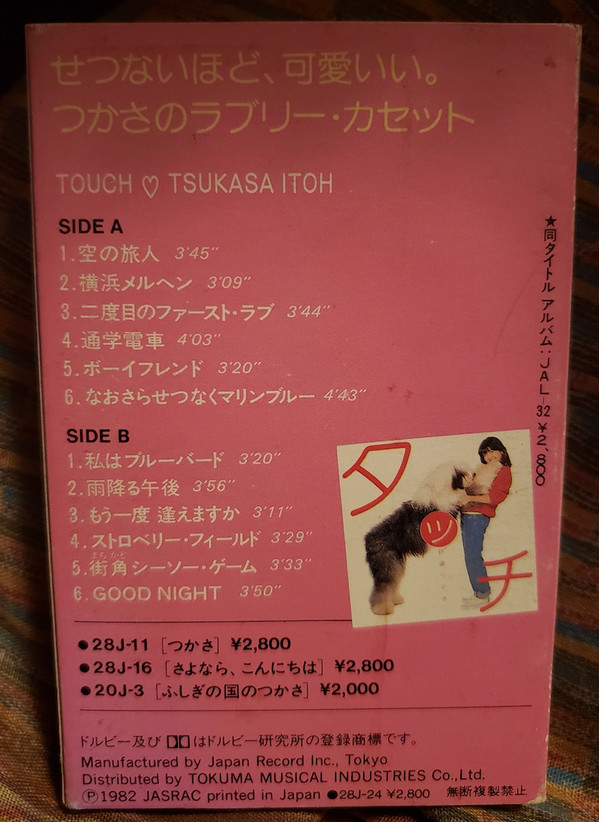 せつないほど、可愛いい。
つかさのラブリー・カセット
TOUCH ♡ TSUKASA ITOH
SIDE A
1.空の旅人 3'45"
2.横浜メルヘン 3'09"
3.二度目のファースト・ラブ 3'44"
4.通学電車 4'03"
5.ボーイフレンド 3'20"
6.なおさらせつなくマリンブルー 4'43"
SIDE B
1.私はブルーバード 3'20"
2.雨降る午後 3'56"
3.もう一度 逢えますか 3'11"
4.ストロベリー・フィールド 3'29"
まち かど
5.街角シーソー・ゲーム 3'33"
6.GOOD NIGHT 3'50"
★同タイトル アルバム:JAL-32 ¥2,800
タッチ
●28J-11 [つかさ] ¥2,800
●28J-16 [さよなら、こんにちは] ¥2,800
●20J-3 [ふしぎの国のつかさ] ¥2,000
ドルビー及び はドルビー研究所の登録商標です。
Manufactured by Japan Record Inc., Tokyo
Distributed by TOKUMA MUSICAL INDUSTRIES Co.,Ltd.
Ⓟ1982 JASRAC printed in Japan ●28J-24 ¥2,800 無断複製禁止